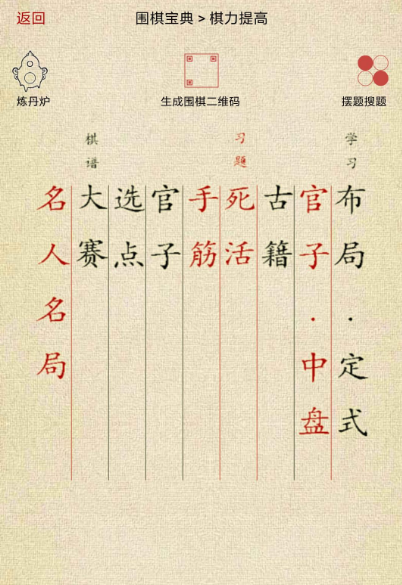 返回
围棋宝典 > 棋力提高
炼丹炉
生成围棋二维码
摆题搜题
学习
布局·定式
官子·中盘
古籍
习题
死活
手筋
官子
选点
棋谱
大赛
名人名局